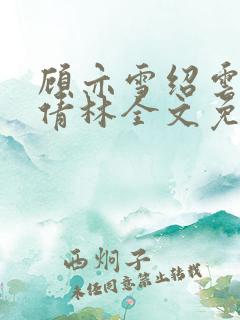 顾亦雪绍雲
倩林全文免
西炯子
未经同意禁止转载